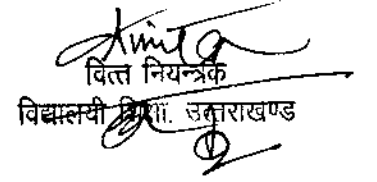 Amita
वित्त नियन्त्रक
विद्यालयी शिक्षा. उत्तराखण्ड